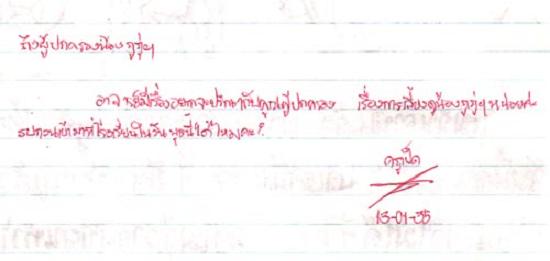 ถึงผู้ปกครองน้อง ฤฤๅฯ
อาจารย์มีเรื่องอยากจะปรึกษากับคุณผู้ปกครอง เรื่องการเลี้ยงดูน้อง หน่อยค่ะ
รบกวนเข้ามาที่โรงเรียนในวันพุธนี้ได้ไหมคะ?
ครูเป็ด
13-01-35